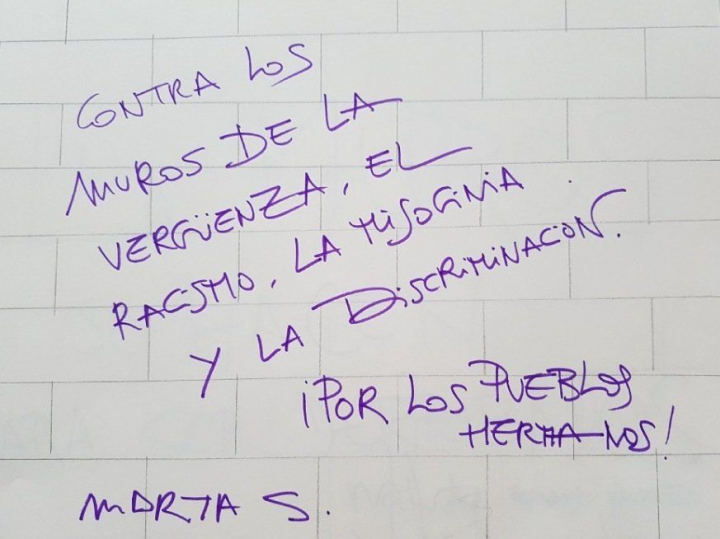 CONTRA LOS
MUROS DE LA
VERGÜENZA, EL
RACISMO, LA MISOGINIA
Y LA DISCRIMINACIÓN.
¡POR LOS PUEBLOS
HERMANOS!
MARTA S.